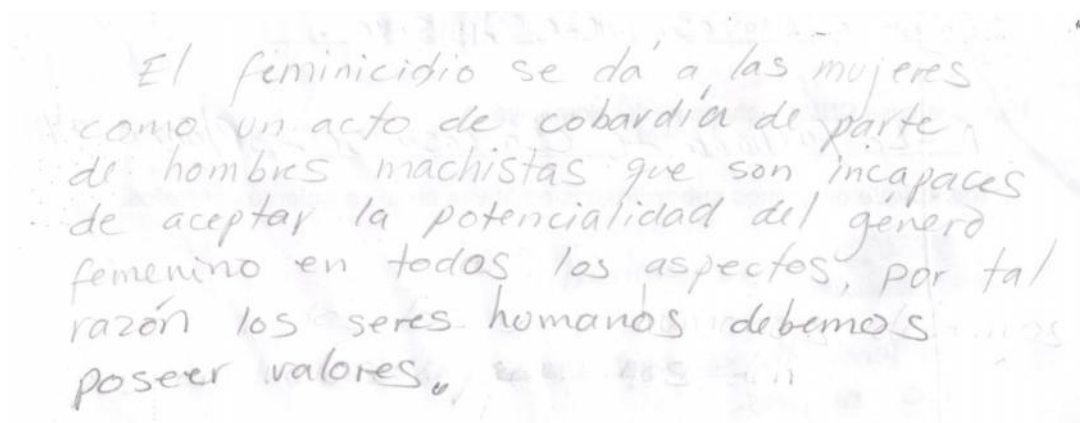 El feminicidio se dá a las mujeres
como un acto de cobardía de parte
de hombres machistas que son incapaces
de aceptar la potencialidad del genero
femenino en todos los aspectos, por tal
razón los seres humanos debemos
poseer valores.